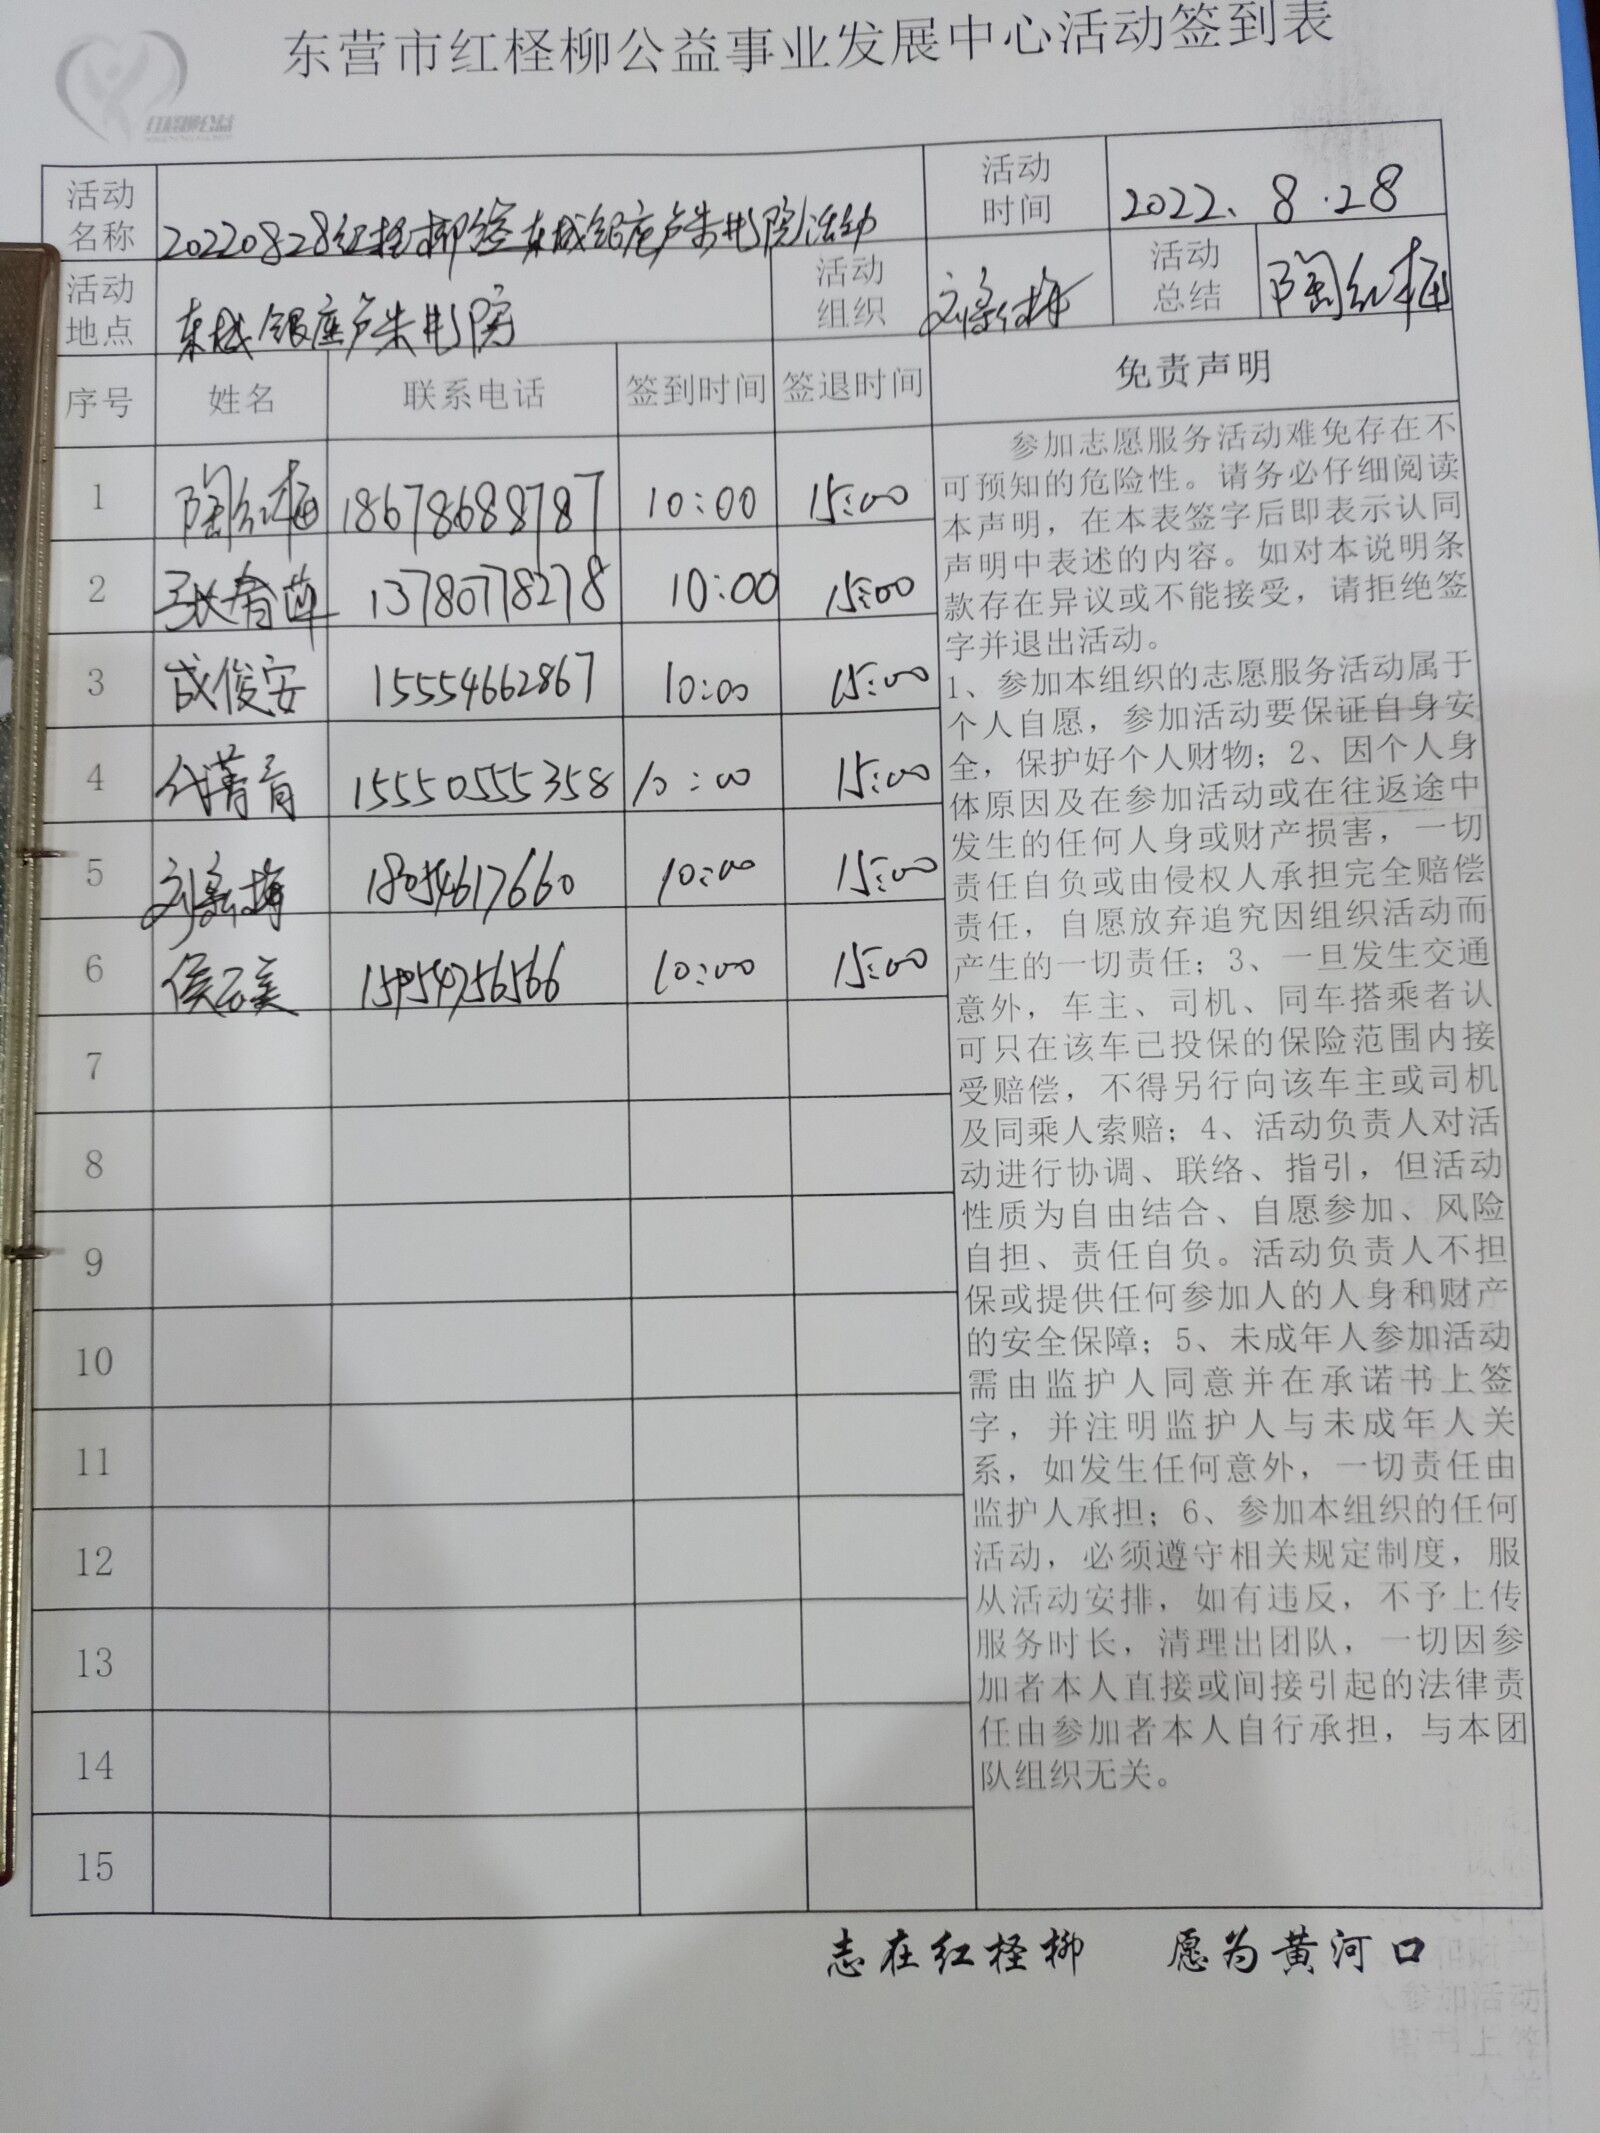 东营市红柽柳公益事业发展中心活动签到表
红柽柳公益
活动名称
活动时间
2022.8.28
活动地点
东城银座
活动组织
活动总结
陶红梅
序号 姓名 联系电话 签到时间 签退时间 免责声明
1 陶红梅 18678688787 10:00 15:00
2 张春萍 13780778278 10:00 15:00
3 成俊安 15554662867 10:00 15:00
4 代菁 15550555358 10:00 15:00
5 18054617660 10:00 15:00
6 侯 15954756566 10:00 15:00
7
8
9
10
11
12
13
14
15
参加志愿服务活动难免存在不
可预知的危险性。请务必仔细阅读
本声明，在本表签字后即表示认同
声明中表述的内容。如对本说明条
款存在异议或不能接受，请拒绝签
字并退出活动。
1、参加本组织的志愿服务活动属于
个人自愿，参加活动要保证自身安
全，保护好个人财物；2、因个人身
体原因及在参加活动或在往返途中
发生的任何人身或财产损害，一切
责任自负或由侵权人承担完全赔偿
责任，自愿放弃追究因组织活动而
产生的一切责任；3、一旦发生交通
意外，车主、司机、同车搭乘者认
可只在该车已投保的保险范围内接
受赔偿，不得另行向该车主或司机
及同乘人索赔；4、活动负责人对活
动进行协调、联络、指引，但活动
性质为自由结合、自愿参加、风险
自担、责任自负。活动负责人不担
保或提供任何参加人的人身和财产
的安全保障；5、未成年人参加活动
需由监护人同意并在承诺书上签
字，并注明监护人与未成年人关
系，如发生任何意外，一切责任由
监护人承担；6、参加本组织的任何
活动，必须遵守相关规定制度，服
从活动安排，如有违反，不予上传
服务时长，清理出团队，一切因参
加者本人直接或间接引起的法律责
任由参加者本人自行承担，与本团
队组织无关。
志在红柽柳 愿为黄河口